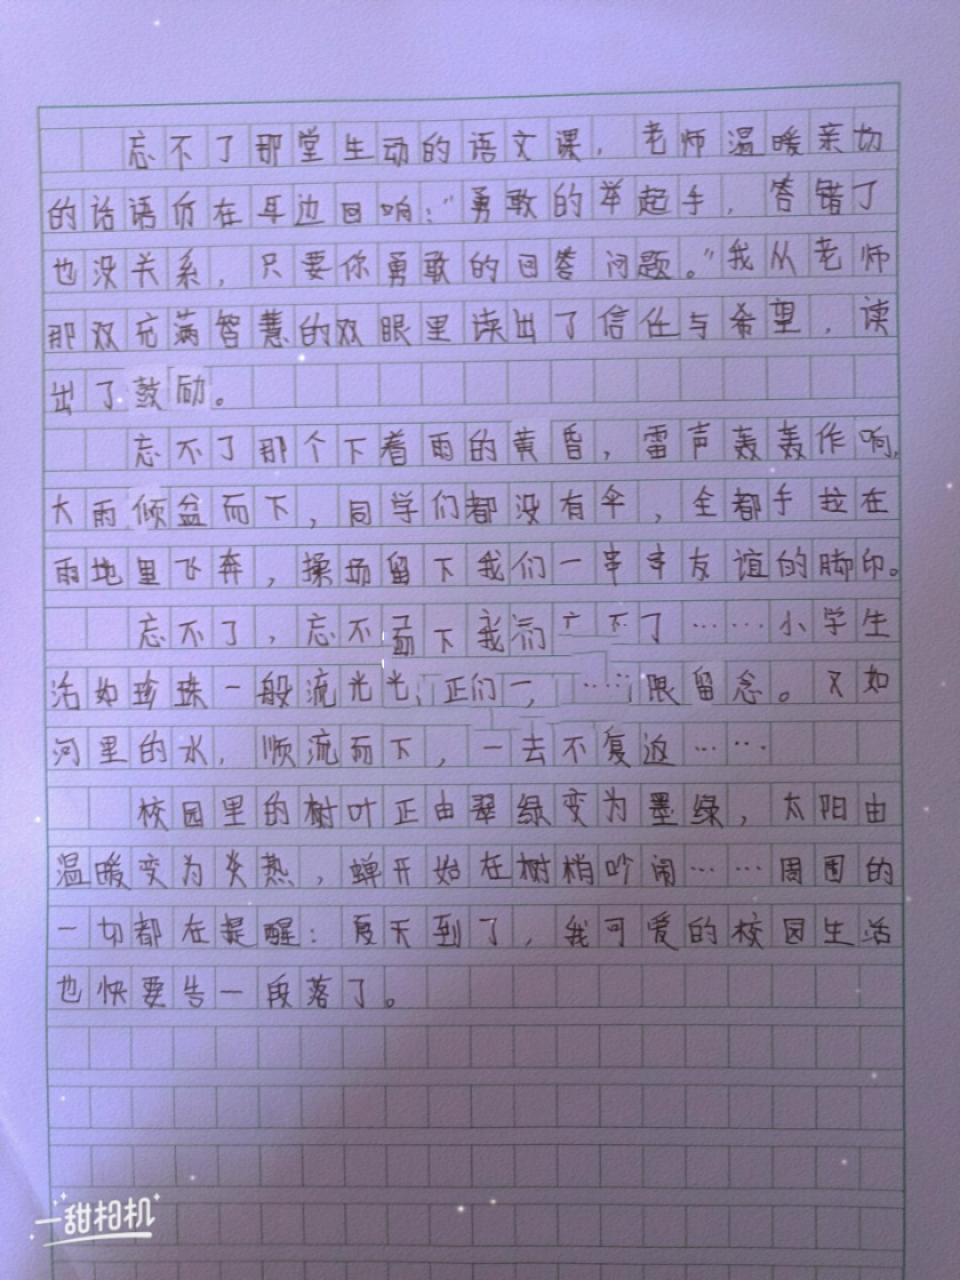 忘不了那堂生动的语文课，老师温暖亲切
的话语仍在耳边回响："勇敢的举起手，答错了
也没关系，只要你勇敢的回答问题。"我从老师
那双充满智慧的双眼里读出了信任与希望，读
出了鼓励。
忘不了那个下着雨的黄昏，雷声轰轰作响，
大雨倾盆而下，同学们都没有伞，全都手拉在
雨地里飞奔，操场留下我们一串串友谊的脚印。
忘不了，忘不 下我们 不了……小学生
活如珍珠一般流光 正们一， ……限留念。又如
河里的水，顺流而下，一去不复返……
校园里的树叶正由翠绿变为墨绿，太阳由
温暖变为炎热，蝉开始在树梢吵闹……周围的
一切都在提醒：夏天到了，我可爱的校园生活
也快要告一段落了。
一甜相机